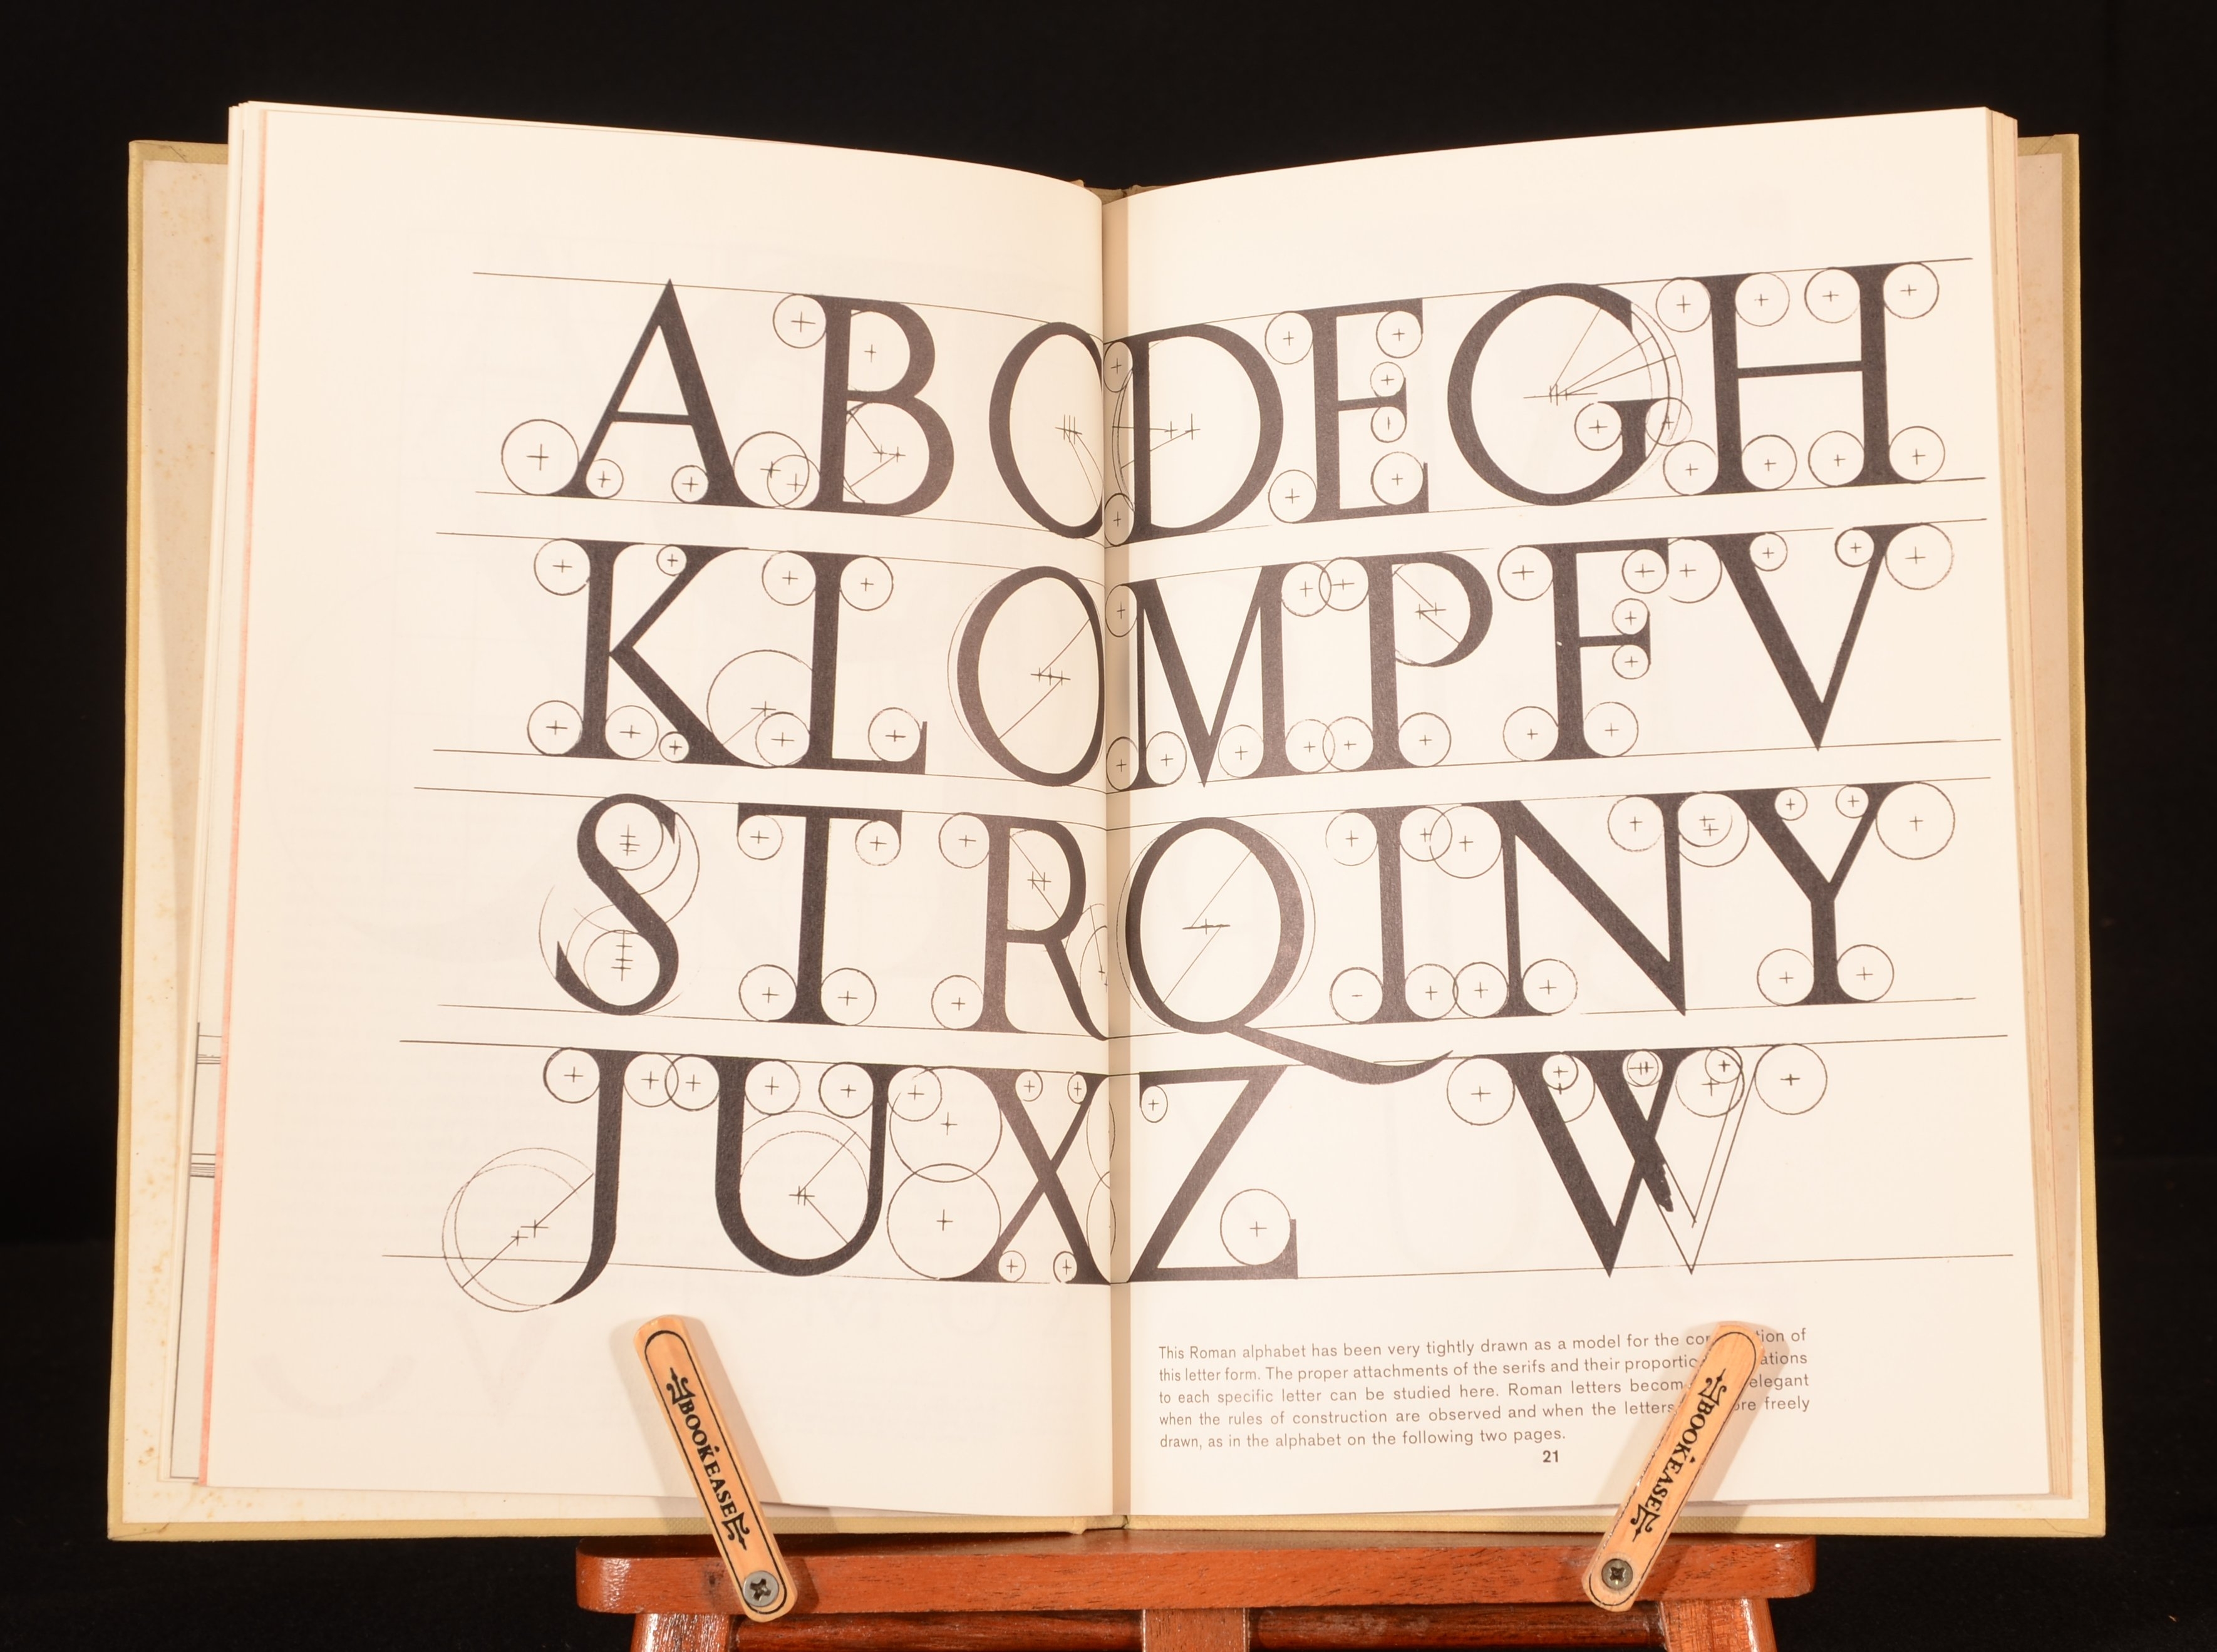 A B C D E G H
K L O M P F V
S T R Q I N Y
J U X Z W
This Roman alphabet has been very tightly drawn as a model for the of
this letter form. The proper attachments of the serifs and their
to each specific letter can be studied here. Roman letters elegant
when the rules of construction are observed and when the letters freely
drawn, as in the alphabet on the following two pages.
21
BOOKEASE
BOOKEASE